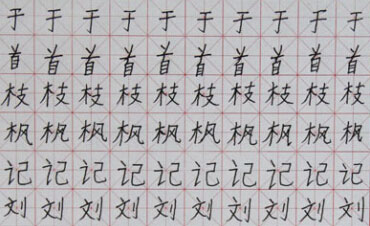 于于于于于于于于于于
首首首首首首首首首首
枝枝枝枝枝枝枝枝枝枝
枫枫枫枫枫枫枫枫枫枫
记记记记记记记记记记
刘刘刘刘刘刘刘刘刘刘